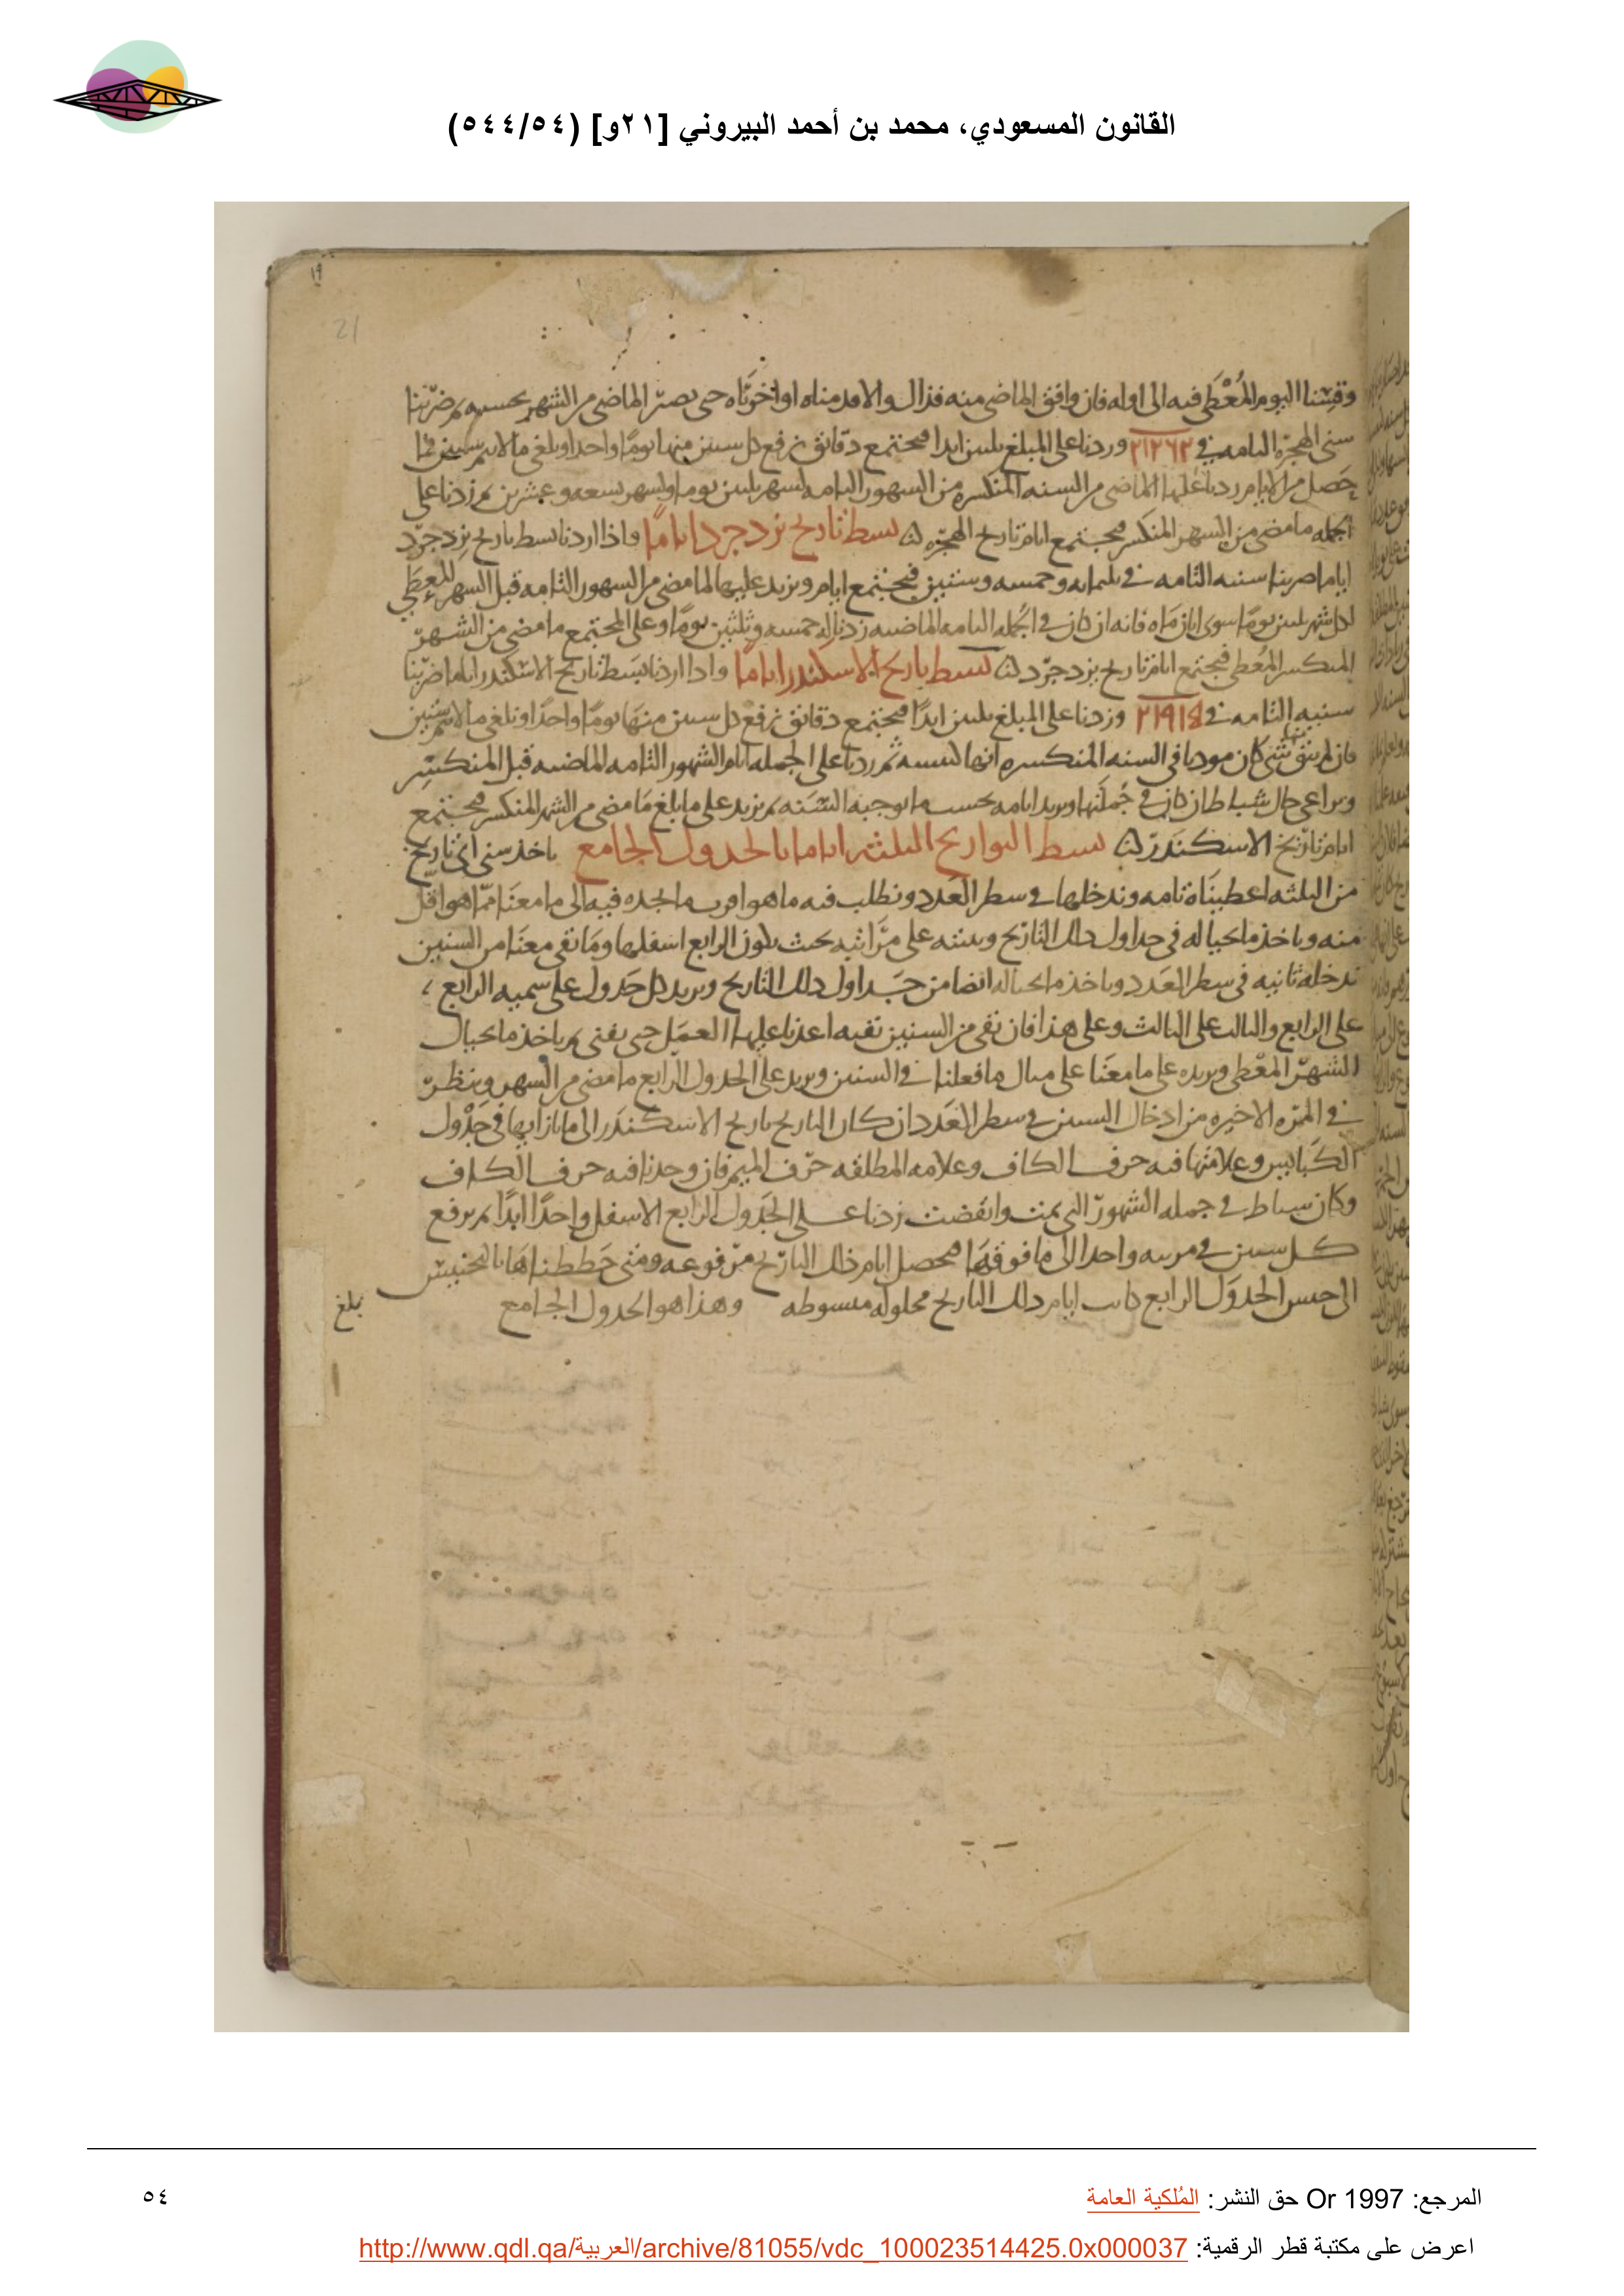 القانون المسعودي، محمد بن أحمد البيروني [٢١و] (٥٤٤/٥٤)
١٩
21
وقسنا اليوم المُعْطَى فيه الى اوله فان وافق الماضى منه فذاك والا قدمناه او اخرناه حتى يصير الماضى من الشهر بحسبه ثم ضربنا
سنى الهجرة التامه في ٢١٢٦٢ وزدنا على المبلغ ثلثين ابدا فيجتمع دقائق نرفع كل ستين منها يوما واحدا ونلغى ما لا يتم ستين فما
حصل من الايام زدنا عليها الماضى من السنه المنكسره من الشهور التامه لشهر ثلثين يوما ولشهر تسعه وعشرين ثم زدنا على
الجمله ما مضى من الشهر المنكسر فيجتمع ايام تاريخ الهجره بسط تاريخ يزدجرد اياما واذا اردنا بسط تاريخ يزدجرد
اياما ضربنا سنيه التامه في ثلثمايه وخمسه وستين فيجتمع ايام ونزيد عليها لما مضى من الشهور التامه قبل الشهر المعطى
لكل شهر ثلثين يوما سوى ابان ماه فانه ان كان في الجمله التامه الماضيه زدنا له خمسه وثلثين يوما وعلى المجتمع ما مضى من الشهر
المنكسر المعطى فيجتمع ايام تاريخ يزدجرد بسط تاريخ الاسكندر اياما واذا اردنا بسط تاريخ الاسكندر اياما ضربنا
سنيه التامه في ٢١٩١٥ وزدنا على المبلغ ثلثين ابدًا فيجتمع دقائق نرفع كل ستين منها يومًا واحدًا ونلغى ما لا يتم ستين
فان لم يبق منها شى كان موديا في السنه المنكسره انها كبيسه ثم زدنا على الجمله ايام الشهور التامه الماضيه قبل المنكسر
ونراعى حال شباط ان كان في جملتها ونزيد ايامه بحسب ما توجبه السنه ثم نزيد على ما بلغ ما مضى من الشهر المنكسر فيجتمع
ايام تاريخ الاسكندر بسط التواريخ الثلثه اياما بالجدول الجامع ناخذ سنى اى تاريخ
من الثلثه اعطيناه تامه وندخلها في سطر العدد ونطلب فيه ما هو اقرب ما نجده فيه الى ما معنا مما هو اقل
منه وناخذ ما بحياله في جداول ذلك التاريخ ونثبته على مراتبه بحيث يكون الرابع اسفلها وما بقى معنا من السنين
ندخله ثانيه في سطر العدد وناخذ ما بحياله ايضا من جداول ذلك التاريخ ونزيد كل جدول على سميه الرابع
على الرابع والثالث على الثالث وعلى هذا فان بقى من السنين بقيه اعدنا عليها العمل حتى يفنى ثم ناخذ ما بحيال
الشهر المعطى ونزيده على ما معنا على مثال ما فعلنا في السنين ونزيد على الجدول الرابع ما مضى من الشهر وننظر
في المره الاخيره من ادخال السنين في سطر العدد ان كان التاريخ تاريخ الاسكندر الى ما بازايها في جدول
الكبايس وعلامتها فيه حرف الكاف وعلامه المطلقه حرف الميم فان وجدنا فيه حرف الكاف
وكان شباط في جمله الشهور التى تمت وانقضت زدنا على الجدول الرابع الاسفل واحدًا ابدًا ثم نرفع
كل ستين في مرتبه واحدا الى ما فوقها فيحصل ايام ذلك التاريخ مرفوعه ومتى حططناها بالتجنيس
الى جنس الجدول الرابع كانت ايام ذلك التاريخ محلوله مبسوطه وهذا هو الجدول الجامع
بلغ
المرجع: Or 1997 حق النشر: المُلكية العامة
٥٤
اعرض على مكتبة قطر الرقمية: http://www.qdl.qa/العربية/archive/81055/vdc_100023514425.0x000037